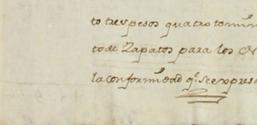 to tres pesos quatro tomin
to de Zapatos para los
la conformidad q.e se expresa